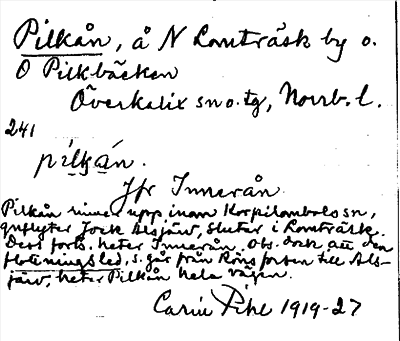 Pilkån, å N Lomträsk by o.
O Pilkbäcken
Överkalix sn o. tg, Norrb. l.
241
pilkån.
Jfr Innerån
Pilkån rinner upp inom Korpilombolo sn,
Jock Alsjärv, slutar i Lomträsk.
Dess forts. heter Innerån. Obs. dock att den
flottningsled, s. går från Röns forsen till Als-
järv, heter Pilkån hela vägen.
Carin Pihl 1919-27